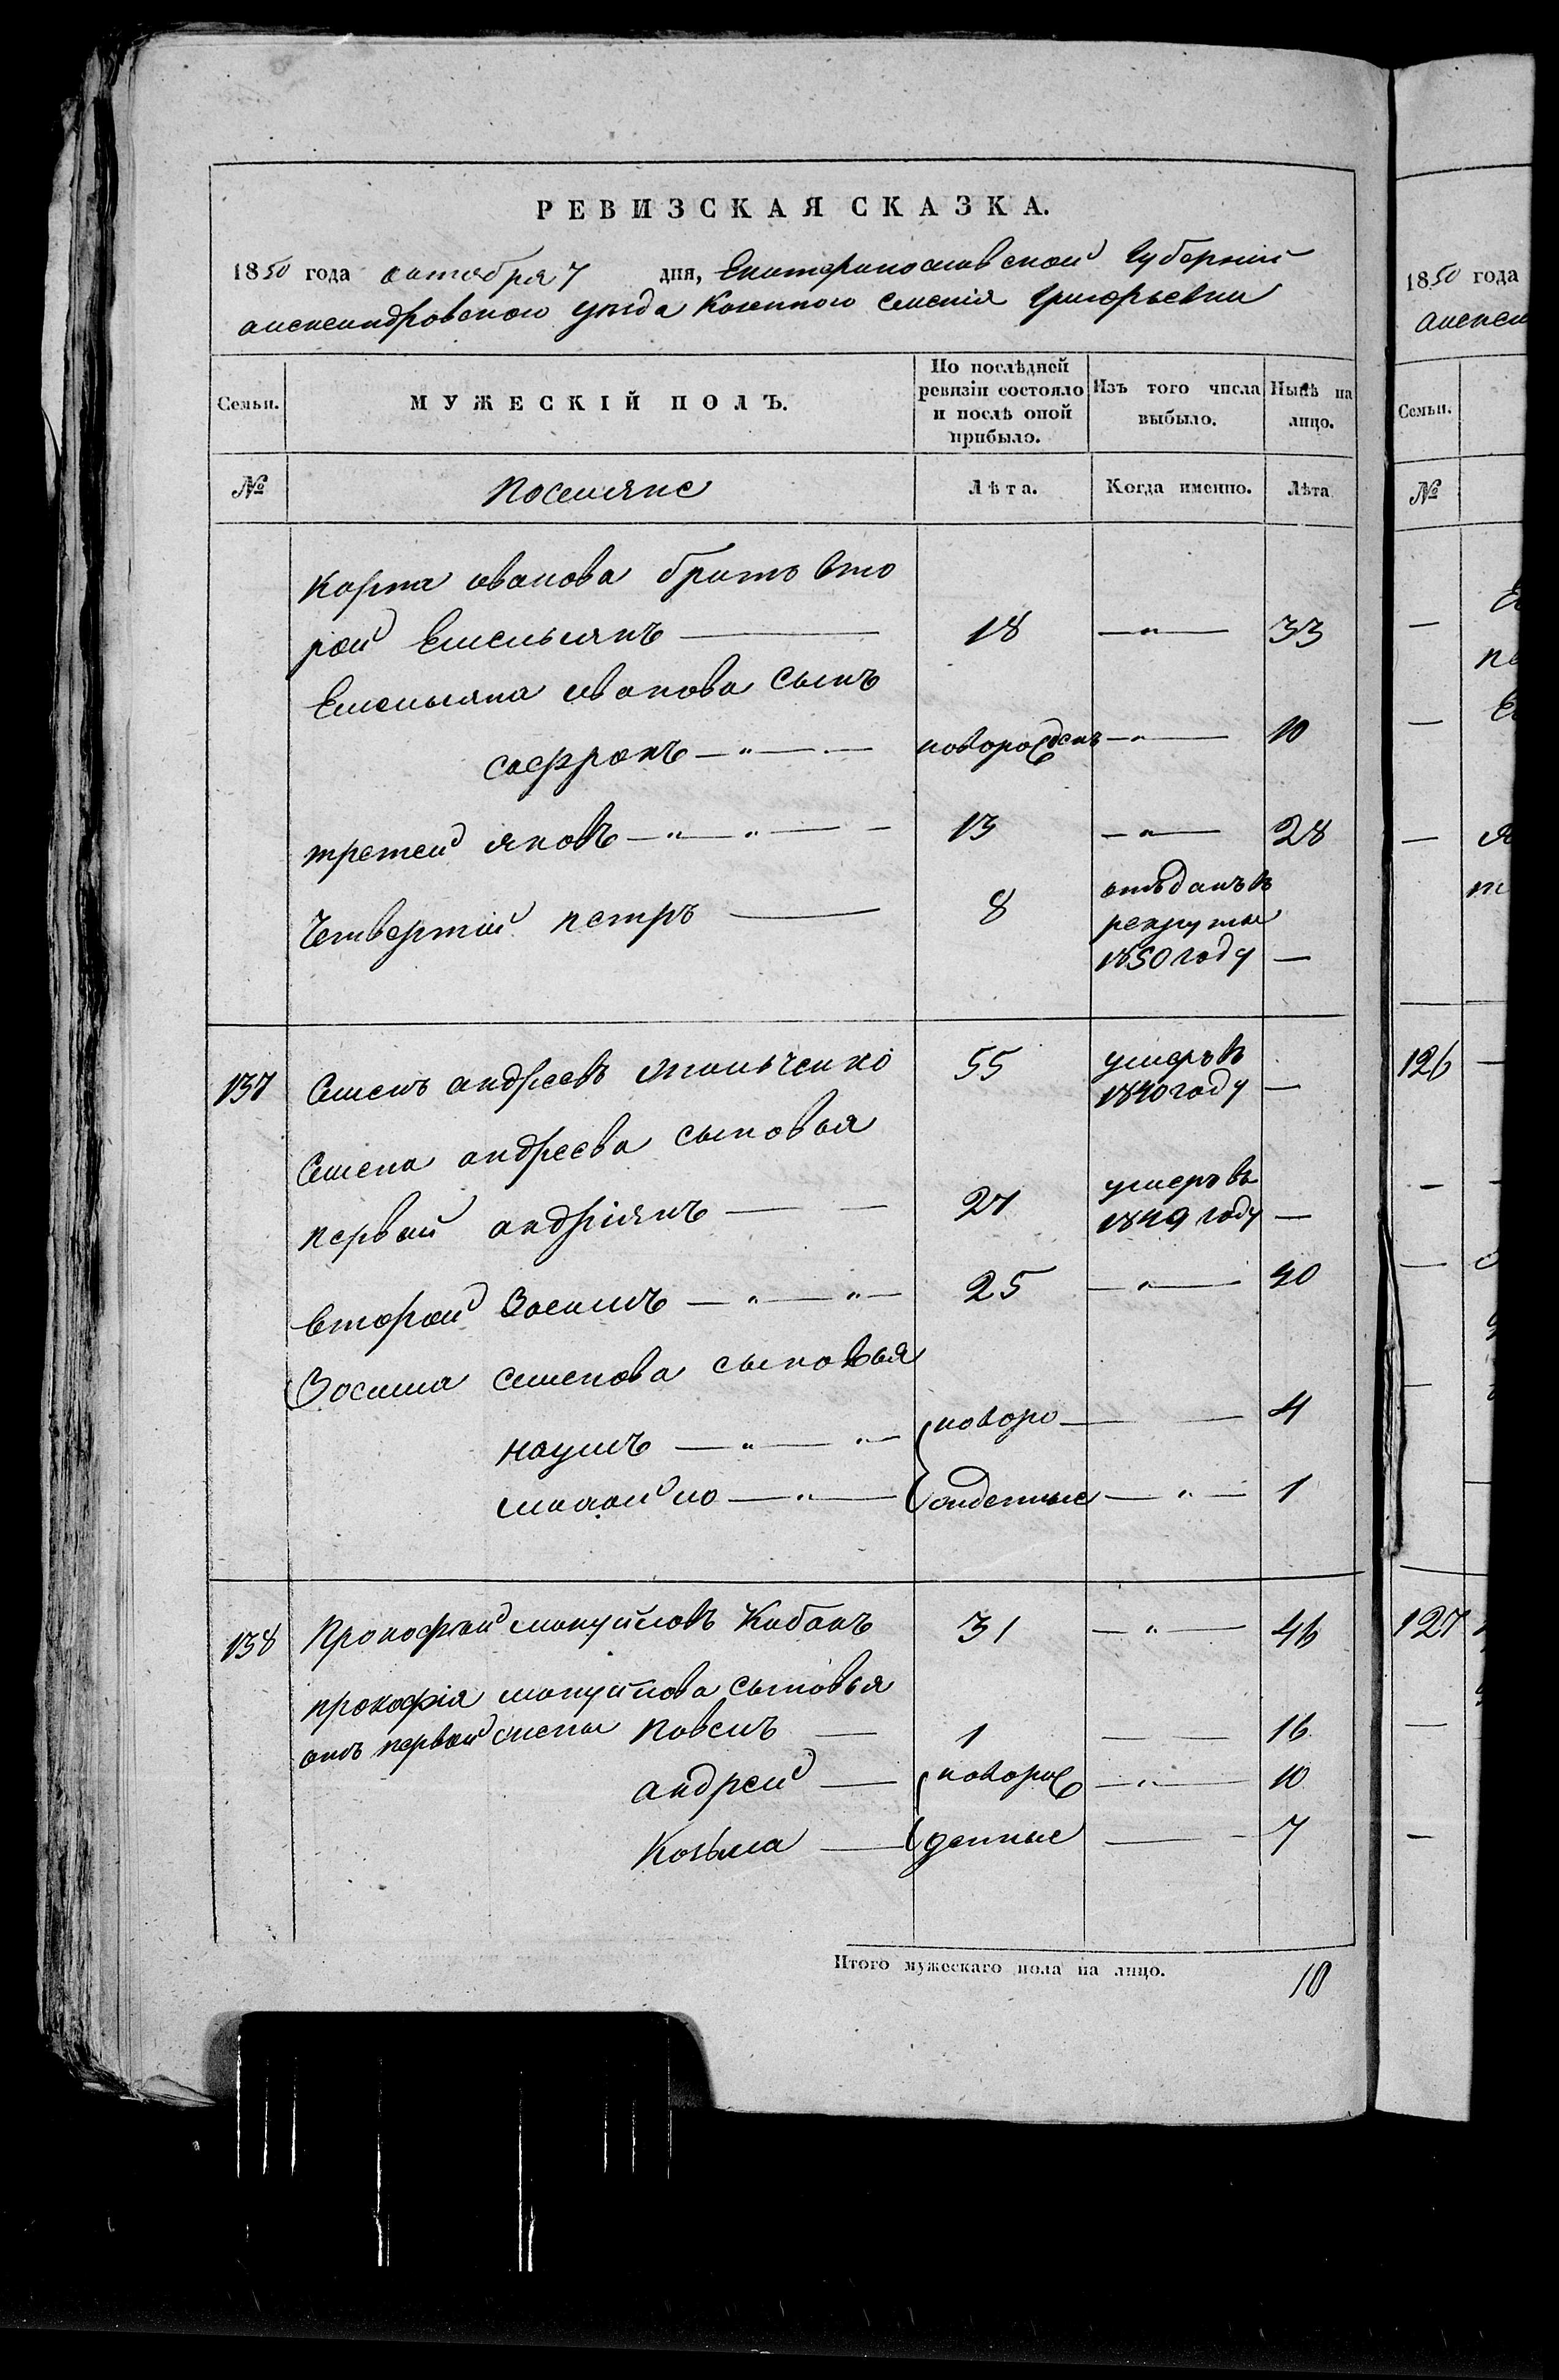 РЕВИЗСКАЯ СКАЗКА.
1850 года октября 7 дня, Екатеринославской Губернии
александровского уезда Казенного селения Григорьевки
Семьи. МУЖЕСКІЙ ПОЛЪ. По послѣдней ревизіи состояло и послѣ оной прибыло. Изъ того числа выбыло. Нынѣ на лицо.
№ Поселяне Лѣта. Когда именно. Лѣта
Карпа иванова братъ вто
рой Емельянъ — 18 — " — 33
Емельяна иванова сынъ
сафронъ — " — — новорожденъ — " — 10
третей яковъ — " — " — — 13 — " — 28
Четвертій петръ — 8 отъданъ в рекруты 1850 году —
137 Семенъ андреевъ 55 умеръ в 1840 году —
Семена андреева сыновья
первый андріянъ — — 27 умеръ в 1849 году —
второй Зосимъ — " — " — 25 — " — 40
Зосима семенова сыновья
наумъ — " — " — новоро — — 4
— " — жденные — " — 1
138 Прокофий мануйловъ Кабанъ 31 — " — 46
прокофія мануйлова сыновья
отъ первой жены павелъ — 1 — — 16
андрей — новорож — " — 10
Козьма — денные — - 7
Итого мужескаго пола на лицо. 10
1850 года
алексан
Семьи.
№
126
127